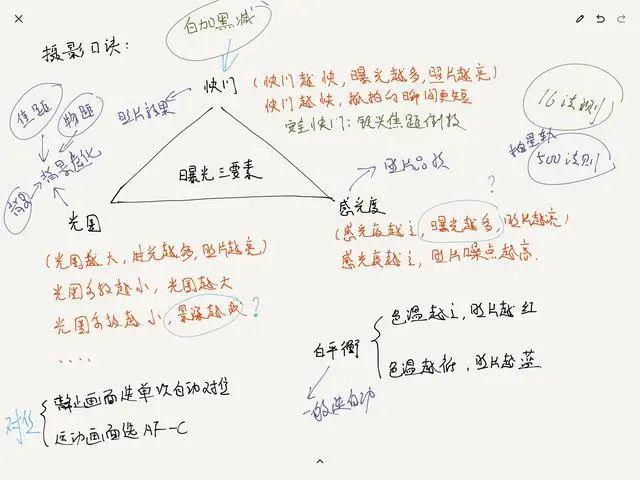 白加黑减
摄影口诀:
快门
(快门越快,曝光越多,照片越亮)
快门越快,抓拍的瞬间更短
安全快门:镜头焦距倒数
照片效果
焦距
物距
背景虚化
背景
16法则
拍星轨
500法则
曝光三要素
照片品质
?
光圈
感光度
(光圈越大,进光越多,照片越亮)
光圈系数越小,光圈越大
光圈系数越小,景深越浅?
....
(感光度越高,曝光越多,照片越亮)
感光度越高,照片噪点越高.
白平衡
色温越高,照片越红
色温越低,照片越蓝
一般选自动
对焦
静止画面选单次自动对焦
运动画面选AF-C